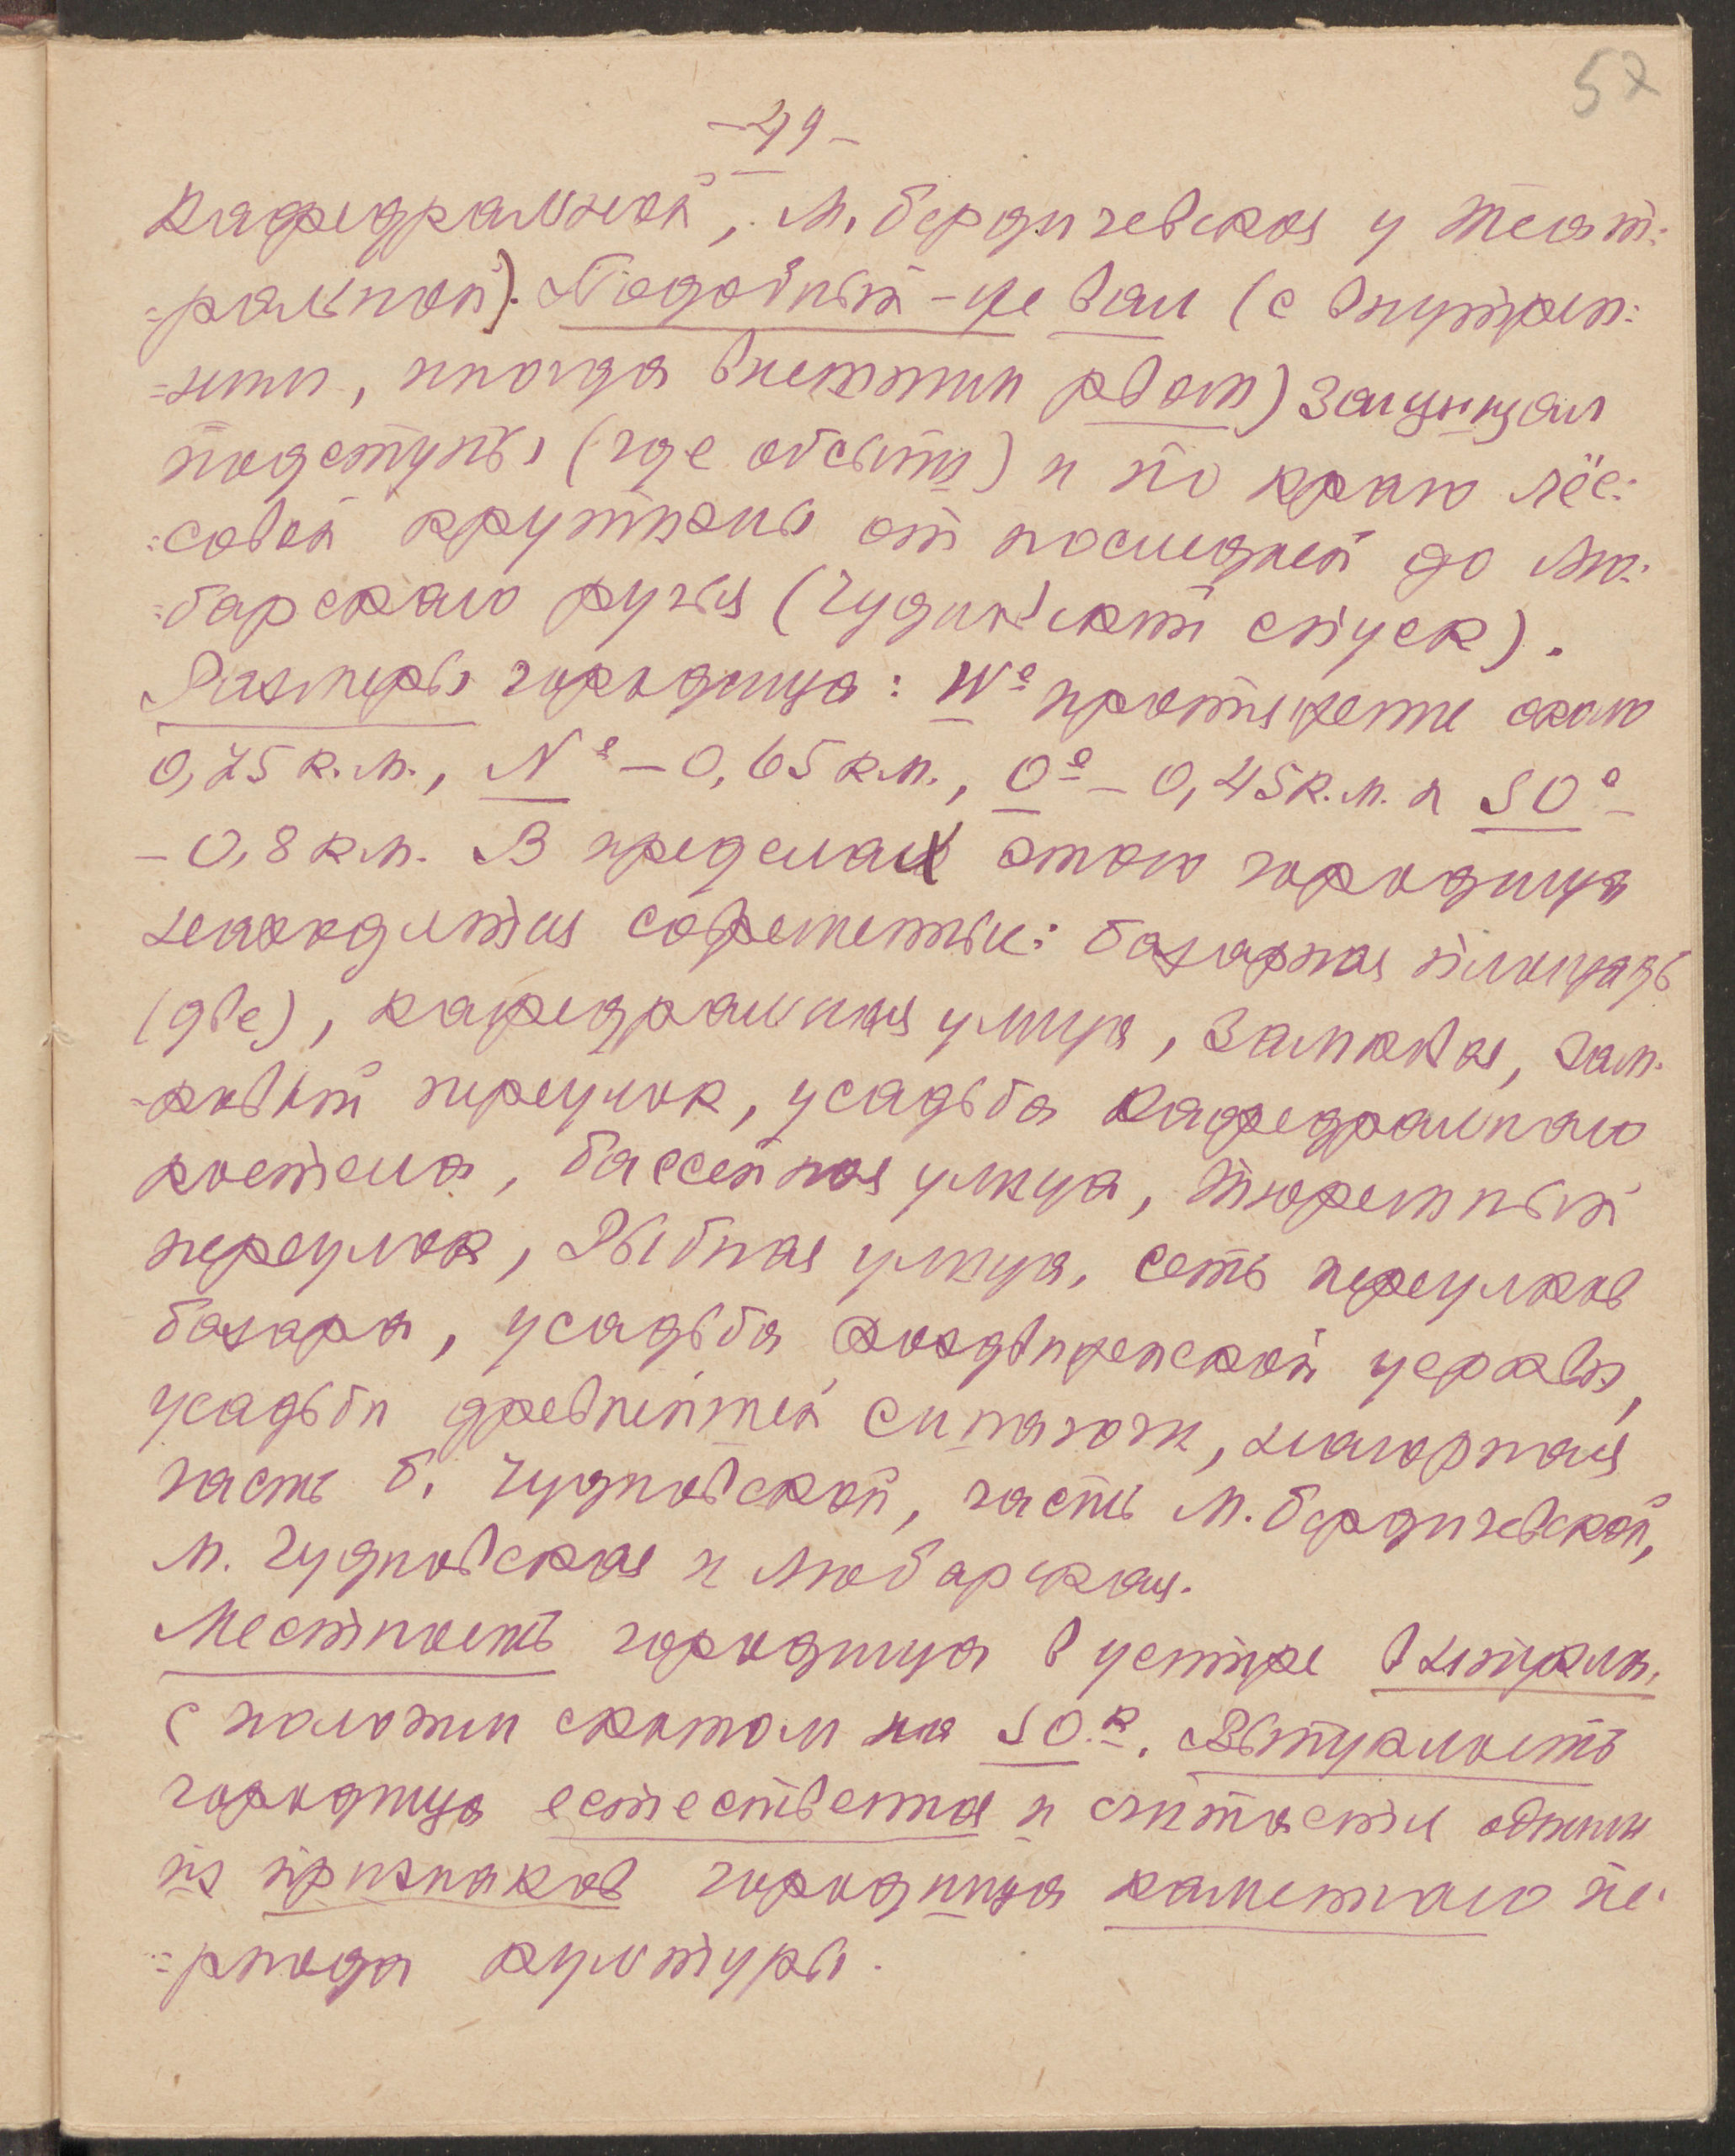 57
-49-
Кафедральной, М. Бердичевская у Театр:
=ральной). Подобный-же вал (с внутрен:
=ним, иногда внешним рвом) защищал
подступы (где обсыпи) и по краю лёс:
=совой крутизны от последней до Лю:
=барскаго ручья (Чудновский спуск).
Размеры городища: W° протяжение около
0,75 к.м., N° - 0,65 км., O° - 0,45 к.м. и SO° -
- 0,8 км. В пределах этого городища
находятся современные: базарная площадь
(две), кафедральная улица, Замковая, Зам-
=ковый переулок, усадьба Кафедральнаго
костела, Бассейная улица, Тюремный
переулок, Рыбная улица, сеть переулков
базара, усадьба Воздвиженской церкви,
усадьбы древнейшей синагоги, нагорная
часть Б. Чудновской, часть М. Бердичевской,
М. Чудновская и Любарская.
Местность городища в центре выпукла,
с пологим скатом на SO.к. Выпуклость
городища естественна и считается одним
из признаков городища каменнаго пе-
=риода культуры.